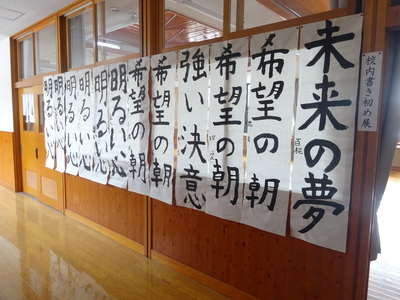 校内書き初め展
未来の夢
希望の朝
希望の朝
強い決意
希望の朝
希望の朝
明るい心
明るい心
明るい心
明るい心
明るい心